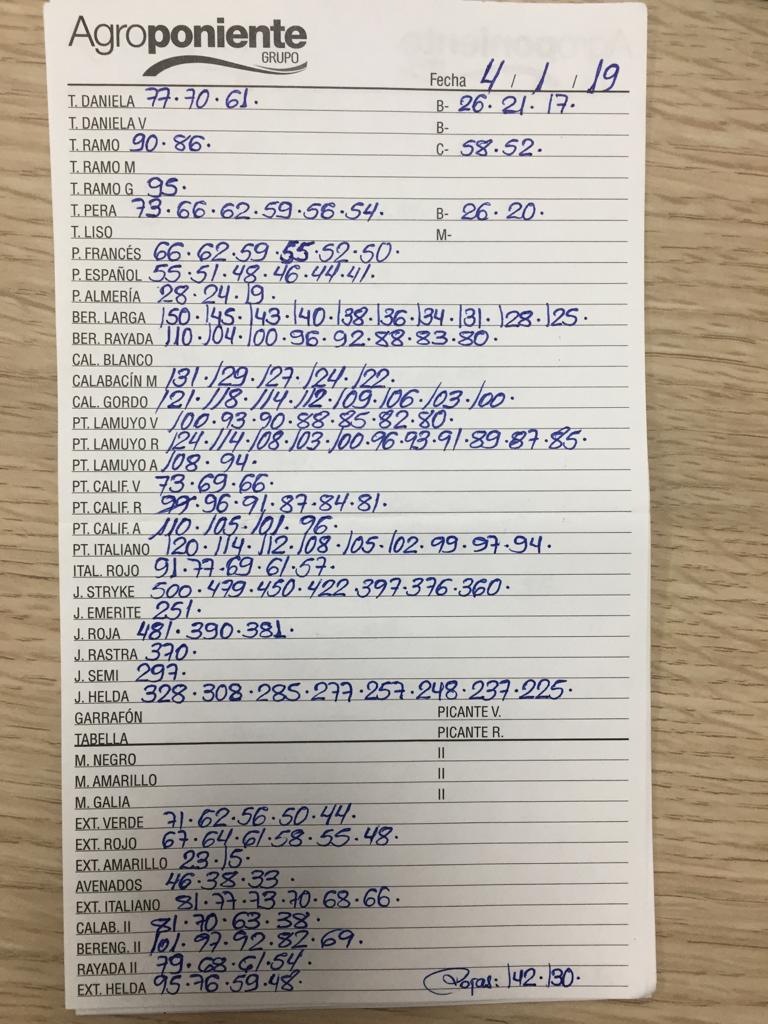 Agroponiente
GRUPO
Fecha 4 / 1 / 19
T. DANIELA 77·70·61· B- 26·21·17·
T. DANELA V B-
T. RAMO 90·86· C- 58·52·
T. RAMO M
T. RAMO G 95·
T. PERA 73·66·62·59·56·54· B- 26·20·
T. LISO M-
P. FRANCÉS 66·62·59·55·52·50·
P. ESPAÑOL 55·51·48·46·44·41·
P. ALMERÍA 28·24·19·
BER. LARGA 150·145·143·140·138·136·134·131·128·125·
BER. RAYADA 110·104·100·96·92·88·83·80·
CAL. BLANCO
CALABACÍN M 131·129·127·124·122·
CAL. GORDO 121·118·114·112·109·106·103·100·
PT. LAMUYO V 100·93·90·88·85·82·80·
PT. LAMUYO R 124·114·108·103·100·96·93·91·89·87·85·
PT. LAMUYO A 108·94·
PT. CALIF. V 73·69·66·
PT. CALIF. R 99·96·91·87·84·81·
PT. CALIF. A 110·105·101·96·
PT. ITALIANO 120·114·112·108·105·102·99·97·94·
ITAL. ROJO 91·77·69·61·57·
J. STRYKE 500·479·450·422·397·376·360·
J. EMERITE 251·
J. ROJA 481·390·381·
J. RASTRA 370·
J. SEMI 297·
J. HELDA 328·308·285·277·257·248·237·225·
GARRAFÓN PICANTE V.
TABELLA PICANTE R.
M. NEGRO II
M. AMARILLO II
M. GALIA II
EXT. VERDE 71·62·56·50·44·
EXT. ROJO 67·64·61·58·55·48·
EXT. AMARILLO 23·15·
AVENADOS 46·38·33·
EXT. ITALIANO 81·77·73·70·68·66·
CALAB. II 81·70·63·38·
BERENG. II 101·97·92·82·69·
RAYADA II 79·68·61·54·
EXT. HELDA 95·76·59·48· Rojas: 142·130·